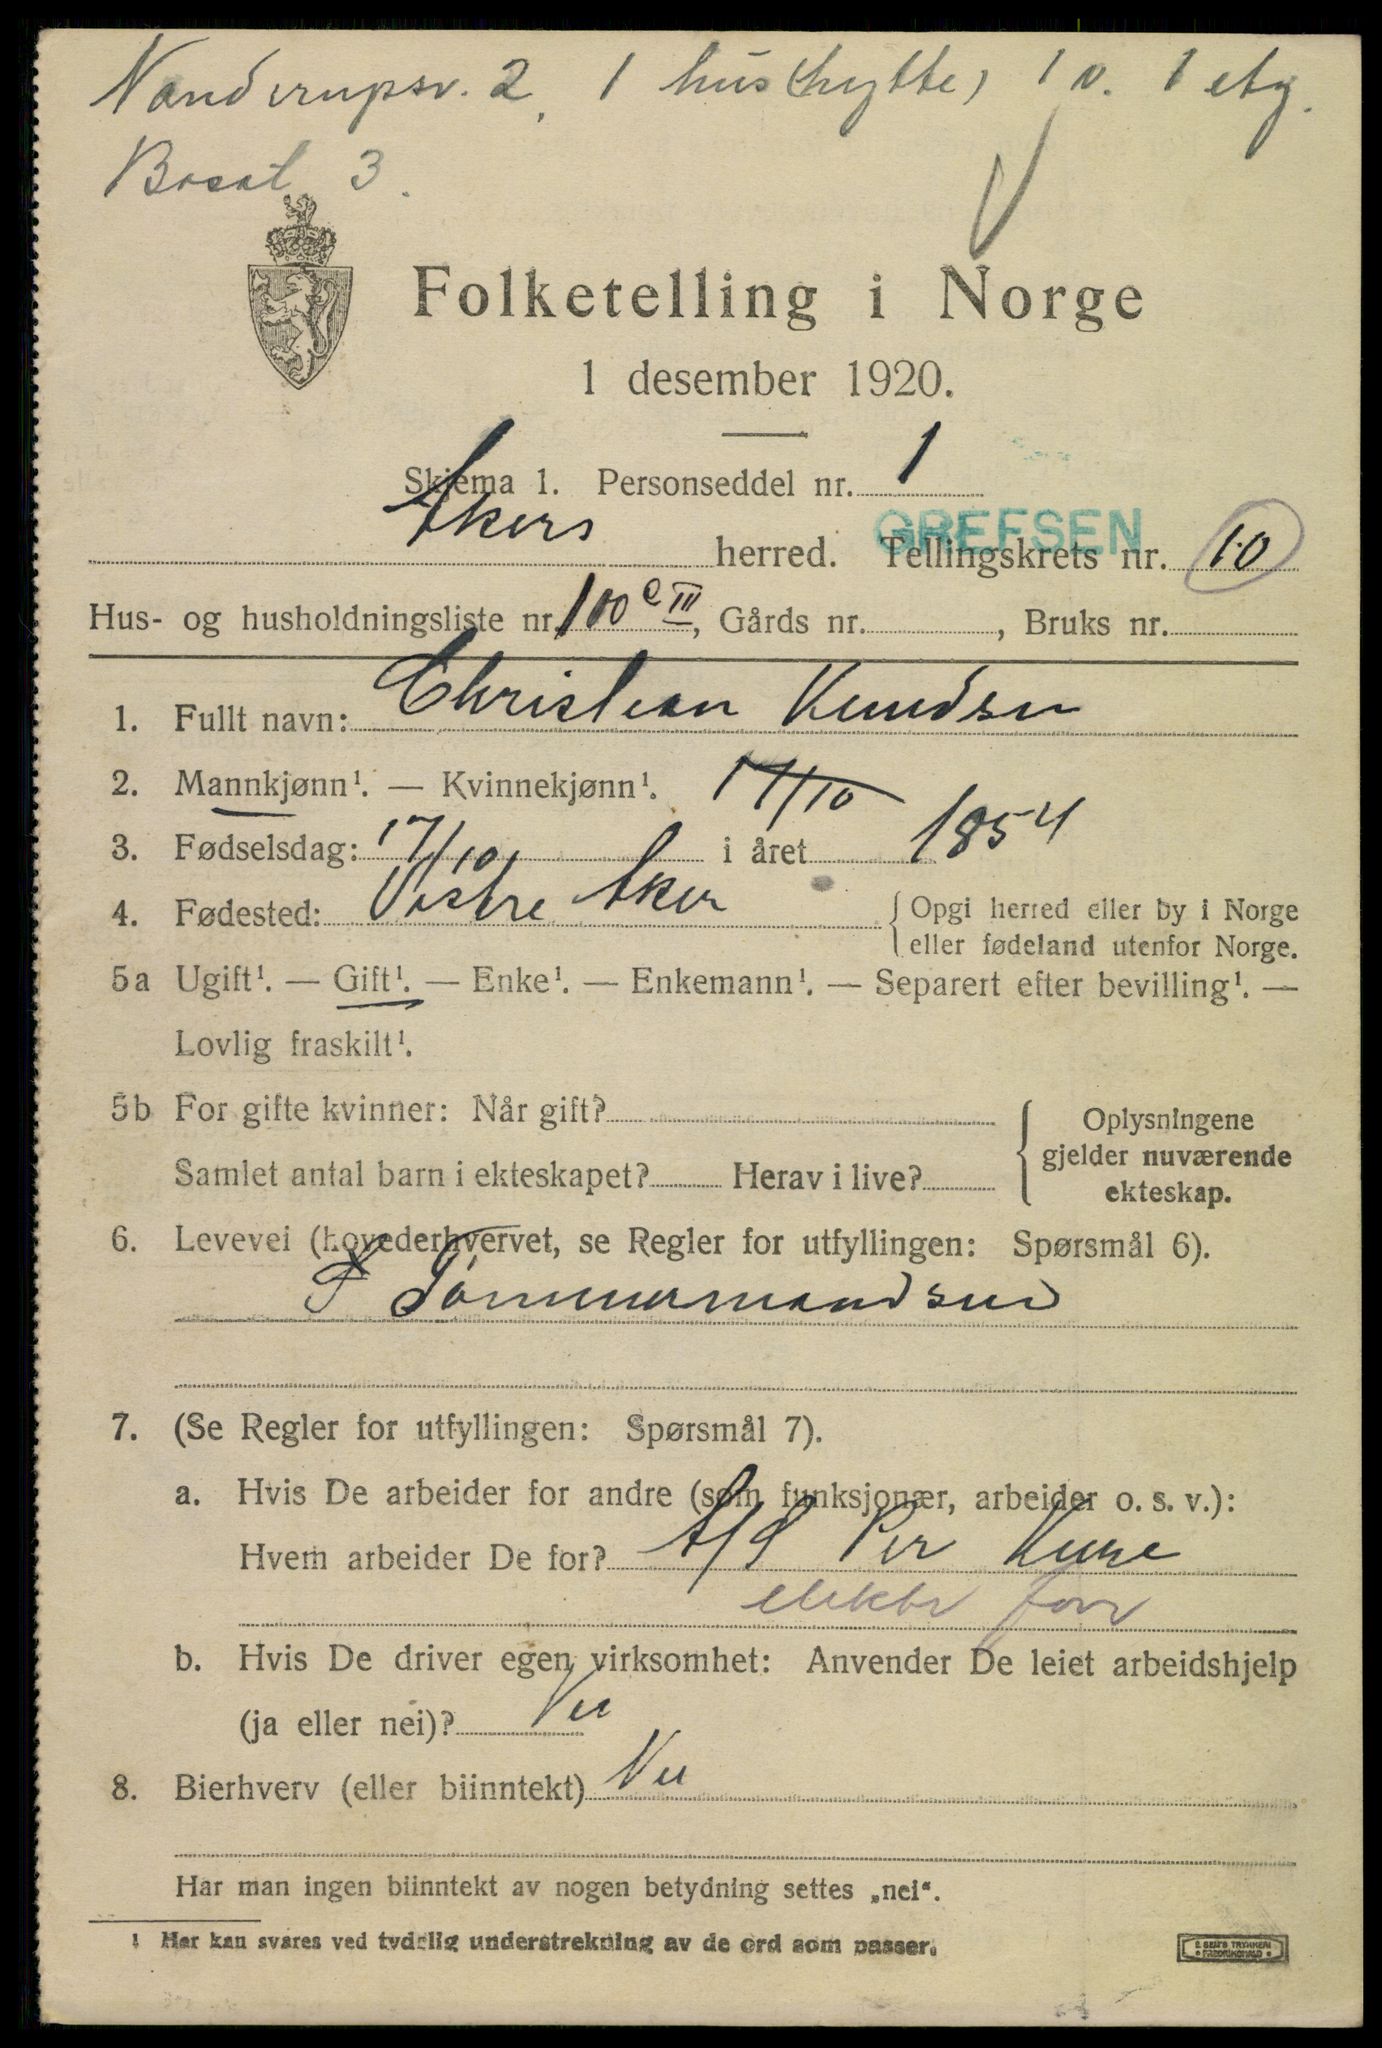 Nanderupsv. 2, 1 hus (hytte) 1 v. 1 etg.
Bosat 3.
Folketelling i Norge
1 desember 1920.
Skjema 1. Personseddel nr. 1
GREFSEN
Akers herred. Tellingskrets nr. 10
Hus- og husholdningsliste nr. 100 e III, Gårds nr. , Bruks nr.
1. Fullt navn: Christian Knudsen
2. Mannkjønn¹. — Kvinnekjønn¹. 17/10
3. Fødselsdag: 17/10 i året 1854
4. Fødested: Vestre Aker { Opgi herred eller by i Norge
eller fødeland utenfor Norge.
5a Ugift¹. — Gift¹. — Enke¹. — Enkemann¹. — Separert efter bevilling¹. —
Lovlig fraskilt¹.
5b For gifte kvinner: Når gift? { Oplysningene
gjelder nuværende
Samlet antal barn i ekteskapet? Herav i live?
ekteskap.
6. Levevei (hovederhvervet, se Regler for utfyllingen: Spørsmål 6).
Tømmermandsud
7. (Se Regler for utfyllingen: Spørsmål 7).
a. Hvis De arbeider for andre (som funksjonær, arbeider o. s. v.):
Hvem arbeider De for? A/S Per Kure
elektr forr
b. Hvis De driver egen virksomhet: Anvender De leiet arbeidshjelp
(ja eller nei)? Nei
8. Bierhverv (eller biinntekt) Nei
Har man ingen biinntekt av nogen betydning settes „nei“.
1 Her kan svares ved tydelig understrekning av de ord som passer.
E. SEM'S TRYKKERI
FREDRIKSHALD